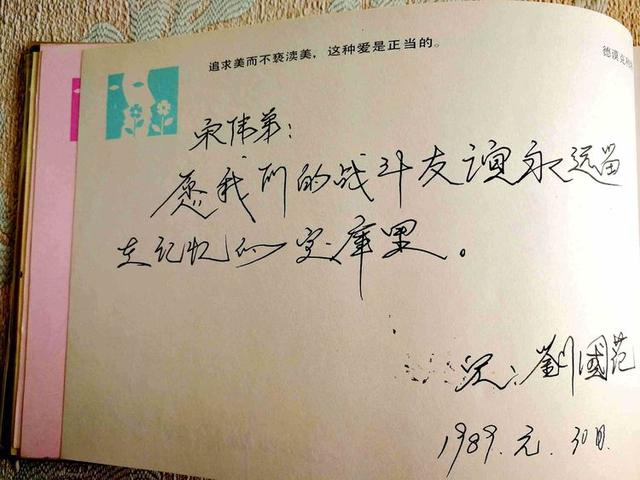 追求美而不亵渎美，这种爱是正当的。
德漠克利
宋伟弟：
愿我们的战斗友谊永远留
在记忆的宝库里。
兄：劉國范
1989.元.30日.